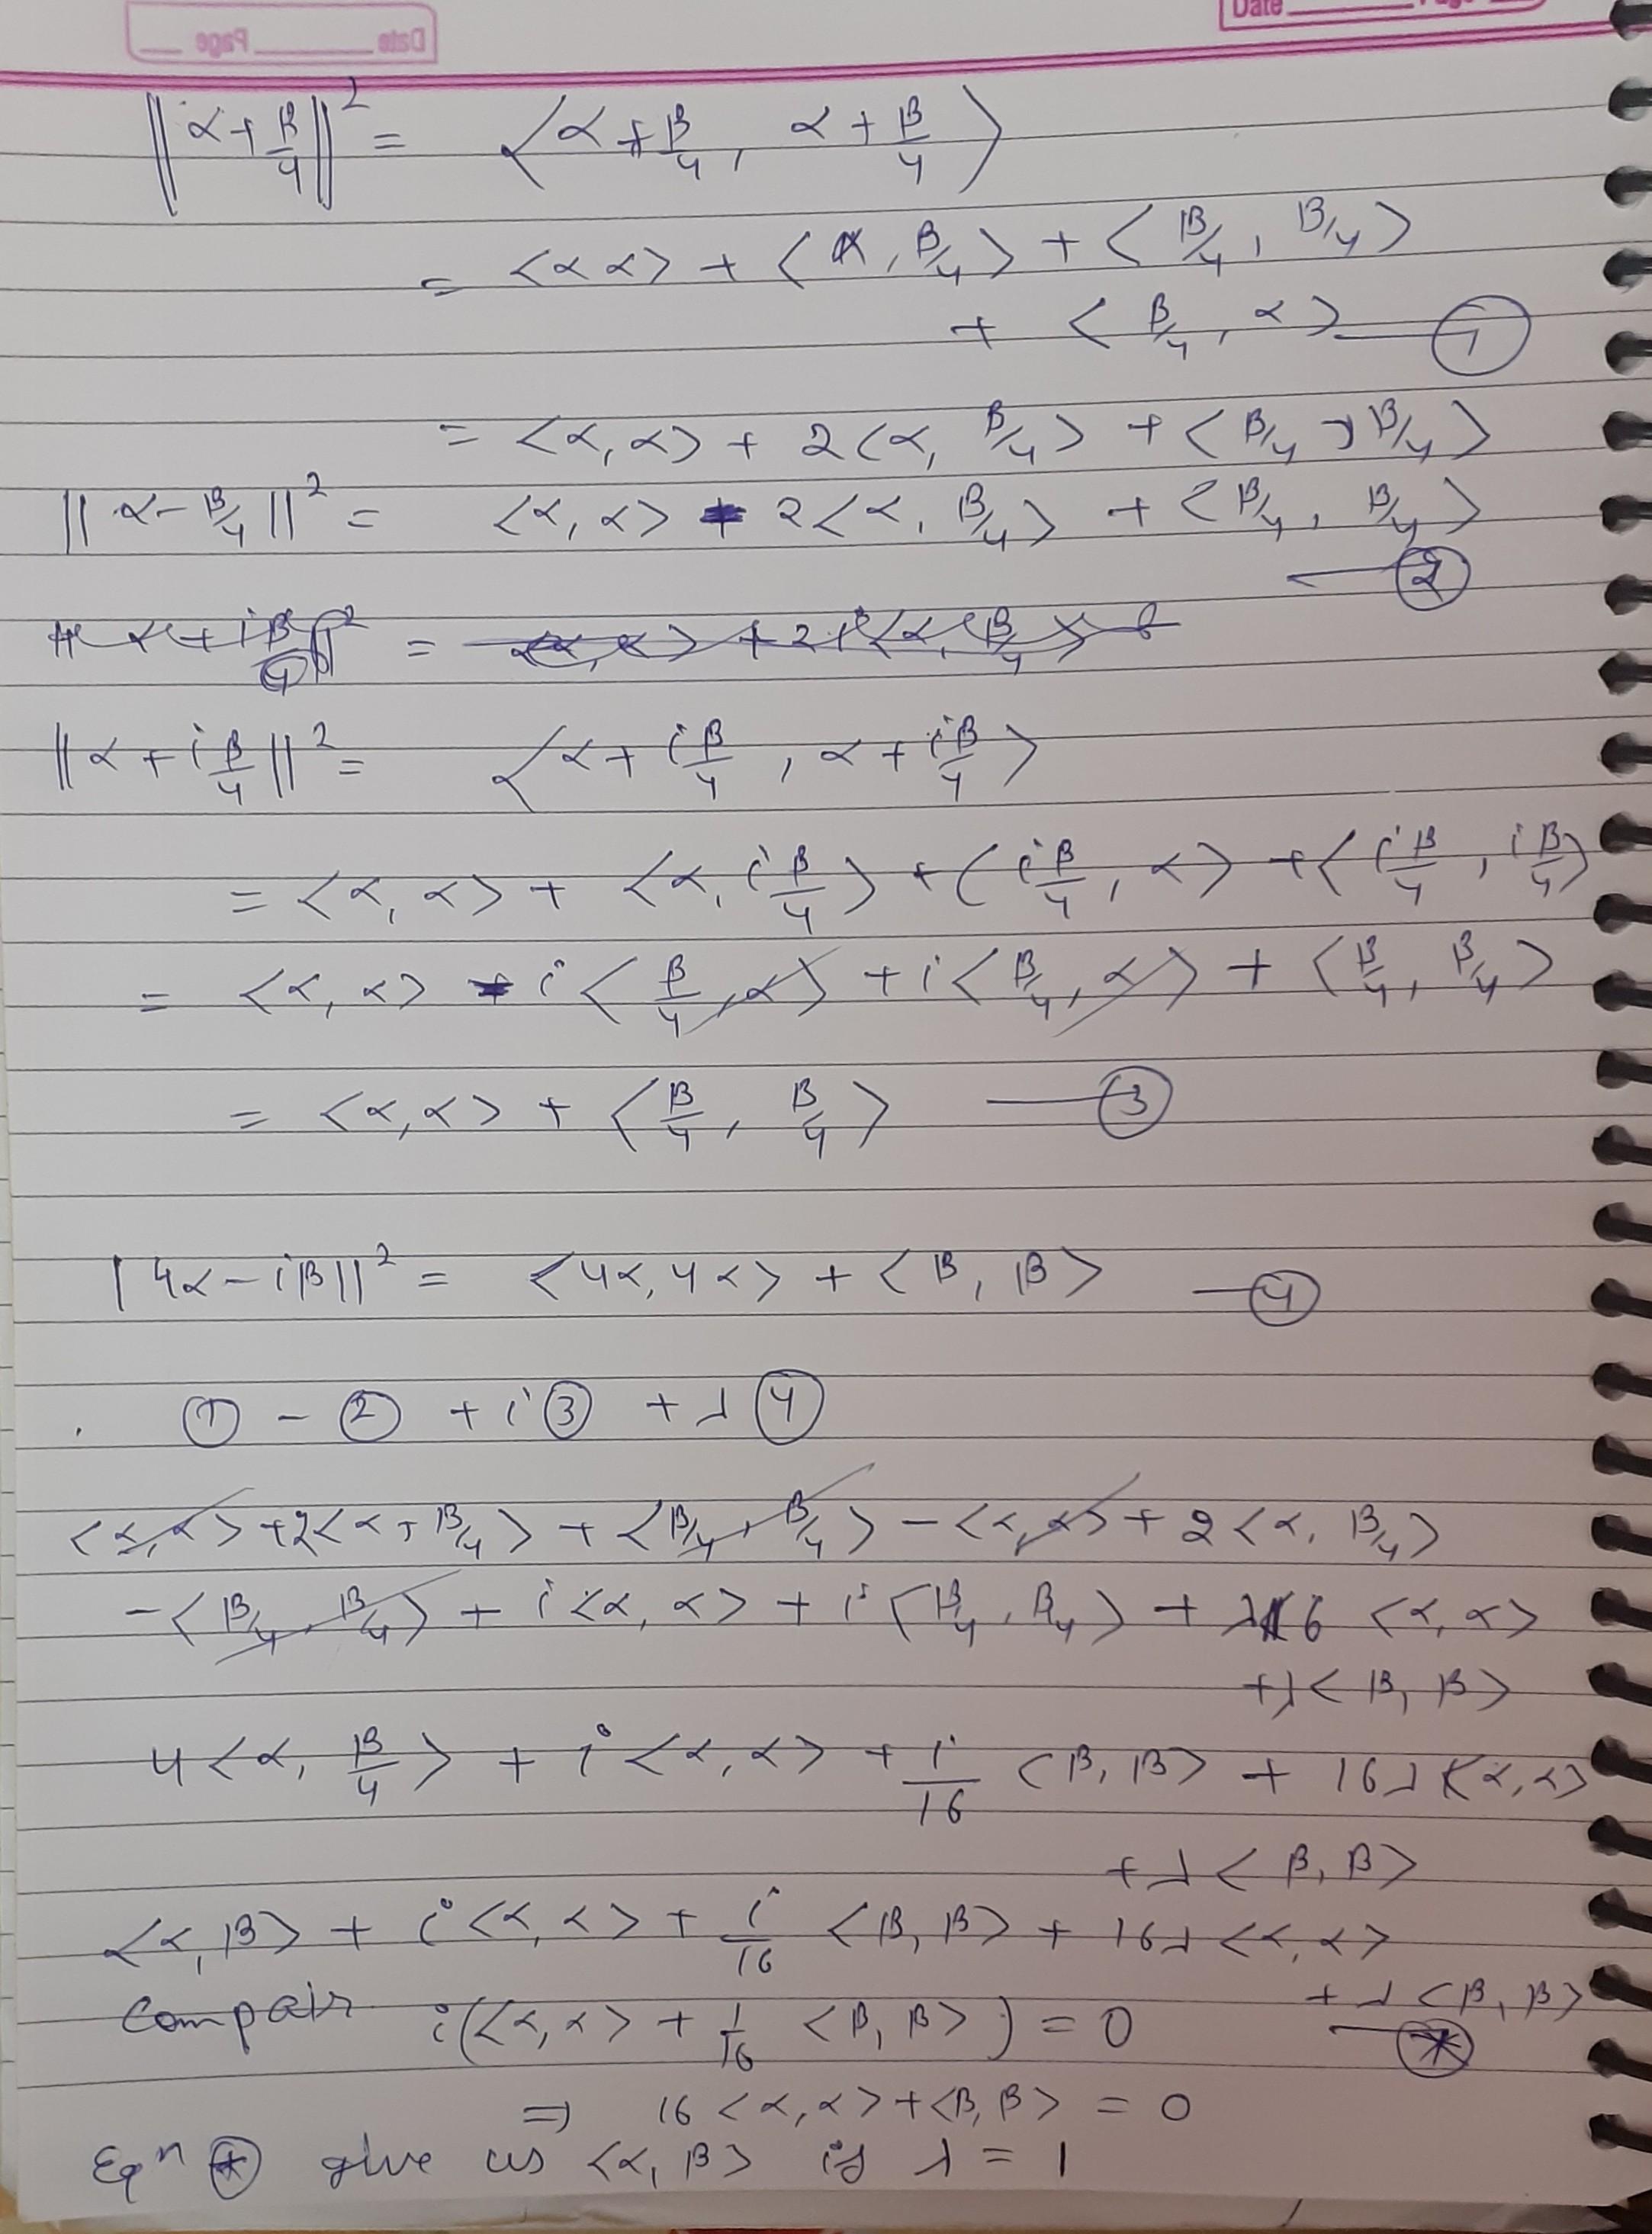 Date Page
Date Page
‖α + β/4‖² = ⟨α + β/4, α + β/4⟩
= <α α> + <α, β/4> + <β/4, β/4>
+ <β/4, α> — ①
= <α, α> + 2<α, β/4> + <β/4, β/4>
||α - β/4||² = <α, α> - 2<α, β/4> + <β/4, β/4>
— ②
||α + iβ/4||² = <α + iβ/4, α + iβ/4>
= <α, α> + <α, iβ/4> + <iβ/4, α> + <iβ/4, iβ/4>
= <α, α> - i<β/4, α> + i<β/4, α> + <β/4, β/4>
= <α, α> + <β/4, β/4> — ③
|4α - iβ||² = <4α, 4α> + <β, β> — ④
① - ② + i③ + λ④
<α, α> + 2<α, β/4> + <β/4, β/4> - <α, α> + 2<α, β/4>
- <β/4, β/4> + i<α, α> + i<β/4, β/4> + λ16 <α, α>
+λ<β, β>
4<α, β/4> + i<α, α> + i/16 <β, β> + 16λ<α, α>
+ λ<β, β>
<α, β> + i<α, α> + i/16 <β, β> + 16λ<α, α>
+ λ<β, β>
Compair i(<α, α> + 1/16 <β, β>) = 0 — ⊛
⇒ 16<α, α> + <β, β> = 0
Eqⁿ ⊛ give us <α, β> if λ = 1